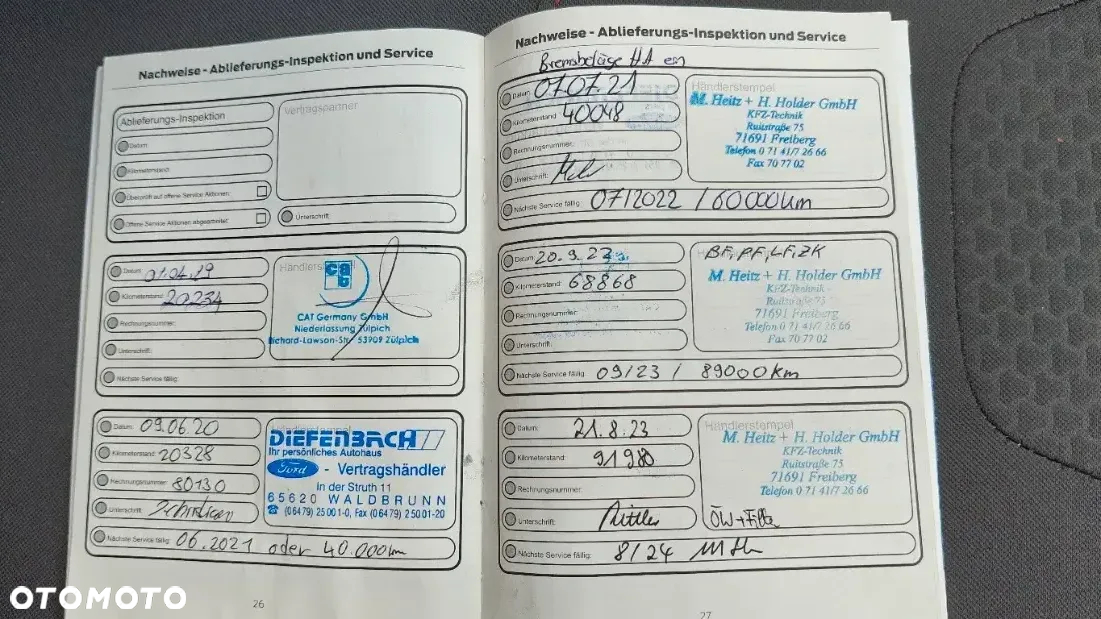 Nachweise - Ablieferungs-Inspektion und Service
Ablieferungs-Inspektion
Datum:
Kilometerstand:
Überprüft auf offene Service Aktionen:
Offene Service Aktionen abgearbeitet:
Vertragspartner
Unterschrift:
Datum: 01.04.19
Kilometerstand: 20234
Rechnungsnummer:
Unterschrift:
Händlerstempel
CAT Germany GmbH
Niederlassung Zülpich
Richard-Lawson-Str. 53909 Zülpich
Nächste Service fällig:
Datum: 09.06.20
Kilometerstand: 20328
Rechnungsnummer: 80130
Unterschrift:
Händlerstempel
DIEFENBACH
Ihr persönliches Autohaus
Ford - Vertragshändler
In der Struth 11
65620 WALDBRUNN
☎ (06479) 25001-0, Fax (06479) 25001-20
Nächste Service fällig: 06.2021 oder 40.000km
26
Nachweise - Ablieferungs-Inspektion und Service
Bremsbeläge HA
Datum: 07.07.21
Kilometerstand: 40048
Rechnungsnummer:
Unterschrift:
Händlerstempel
M. Heitz + H. Holder GmbH
KFZ-Technik
Ruitstraße 75
71691 Freiberg
Telefon 0 71 41/7 26 66
Fax 70 77 02
Nächste Service fällig: 07/2022 / 60000km
Datum: 20.9.22
Kilometerstand: 68868
Rechnungsnummer:
Unterschrift:
BF, PF, LF, ZK
M. Heitz + H. Holder GmbH
KFZ-Technik
Ruitstraße 75
71691 Freiberg
Telefon 0 71 41/7 26 66
Fax 70 77 02
Nächste Service fällig: 09/23 / 89000km
Datum: 21.8.23
Kilometerstand: 91980
Rechnungsnummer:
Unterschrift:
Händlerstempel
M. Heitz + H. Holder GmbH
KFZ-Technik
Ruitstraße 75
71691 Freiberg
Telefon 0 71 41/7 26 66
ÖW + Filter
Nächste Service fällig: 8/24
27
OTOMOTO